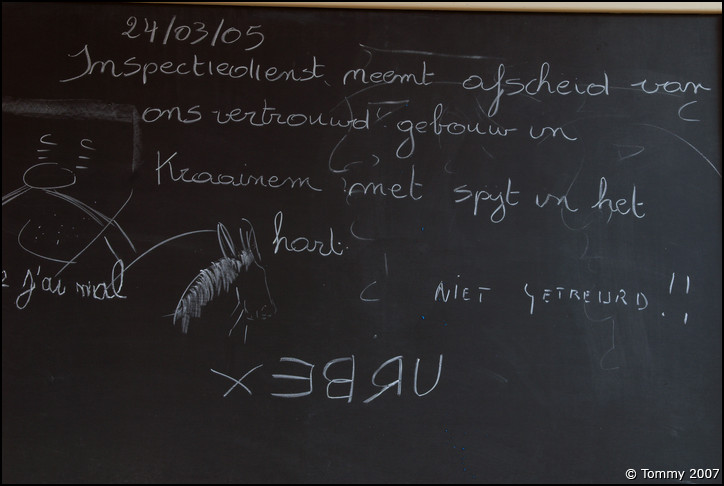 24/03/05
Inspectiedienst neemt afscheid van
ons vertrouwd gebouw in
Kraainem met spyt in het
hart.
j'ai mal
NIET GETREURD!!
URBEX
© Tommy 2007